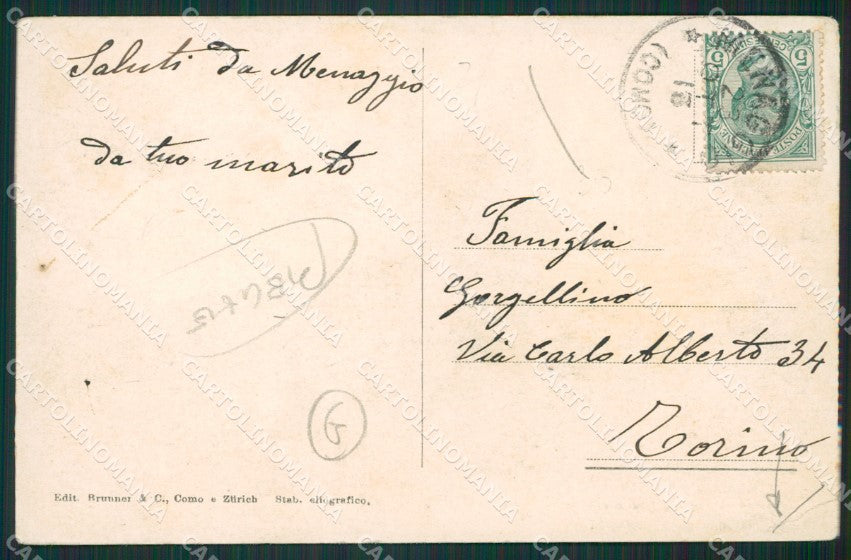 Saluti da Menaggio
da tuo marito
Famiglia
Gorgellino
Via Carlo Alberto 34
Torino
G
Edit. Brunner & C., Como e Zürich Stab. eliografico.
(COMO)
5
CARTOLINOMANIA